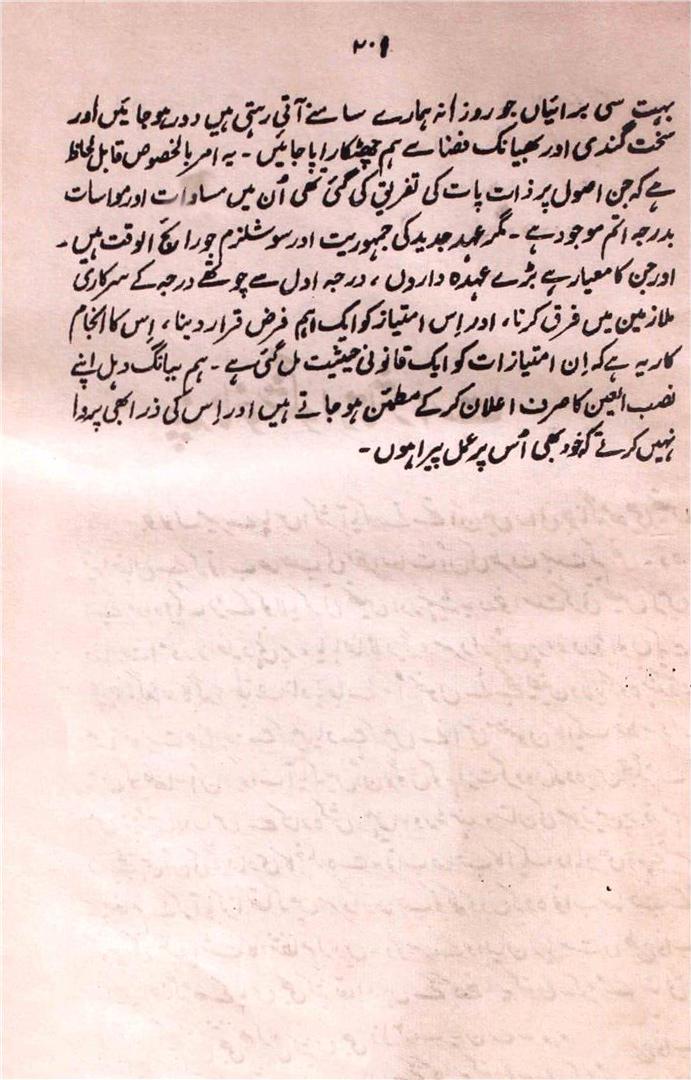 ۲۰۹
بہت سی برائیاں جو روزانہ ہمارے سامنے آتی رہتی ہیں دور ہو جائیں اور
سخت گندی اور بھیانک فضا سے ہم چھٹکارا پا جائیں ۔ یہ امر بالخصوص قابل لحاظ
ہے کہ جن اصول پر ذات پات کی تفریق کی گئی تھی اُن میں مساوات اور مواسات
بدرجہ اتم موجود ہے ۔ مگر عہد جدید کی جمہوریت اور سوشلزم جو رائج الوقت ہیں ۔
اور جن کا معیار ہے بڑے عہدہ داروں ، درجہ اول سے چوتھے درجہ کے سرکاری
ملازمین میں فرق کرنا ، اور اِس امتیاز کو ایک اہم فرض قرار دینا ، اِس کا انجام
کار یہ ہے کہ اِن امتیازات کو ایک قانونی حیثیت مل گئی ہے ۔ ہم ببانگ دہل اپنے
نصب العین کا صرف اعلان کر کے مطمئن ہو جاتے ہیں اور اِس کی ذرا بھی پروا
نہیں کرتے کہ خود بھی اُس پر عمل پیرا ہوں ۔